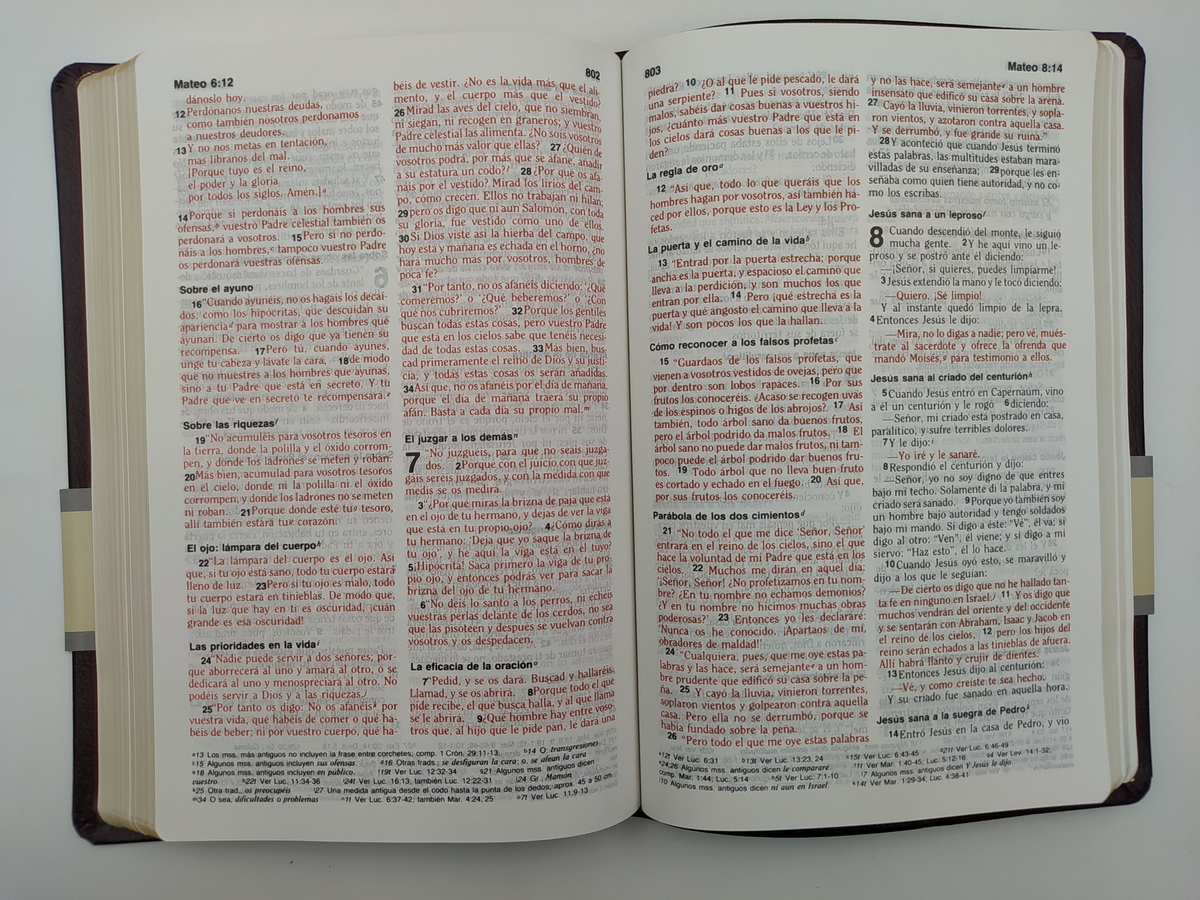 Mateo 6:12
802
dánoslo hoy.
12 Perdónanos nuestras deudas,
como también nosotros perdonamos
a nuestros deudores.
13 Y no nos metas en tentación,
mas líbranos del mal.
[Porque tuyo es el reino,
el poder y la gloria
por todos los siglos. Amén.]ª
14 Porque si perdonáis a los hombres sus
ofensas,ᵇ vuestro Padre celestial también os
perdonará a vosotros. 15 Pero si no perdo-
náis a los hombres,ᶜ tampoco vuestro Padre
os perdonará vuestras ofensas.
Sobre el ayuno
16 "Cuando ayunéis, no os hagáis los decaí-
dos, como los hipócritas, que descuidan su
aparienciaᵈ para mostrar a los hombres que
ayunan. De cierto os digo que ya tienen su
recompensa. 17 Pero tú, cuando ayunes,
unge tu cabeza y lávate la cara, 18 de modo
que no muestres a los hombres que ayunas,
sino a tu Padre que está en secreto. Y tu
Padre que ve en secreto te recompensará.ᵉ
Sobre las riquezasᶠ
19 "No acumuléis para vosotros tesoros en
la tierra, donde la polilla y el óxido corrom-
pen, y donde los ladrones se meten y roban.
20 Más bien, acumulad para vosotros tesoros
en el cielo, donde ni la polilla ni el óxido
corrompen, y donde los ladrones no se meten
ni roban. 21 Porque donde esté tuᵍ tesoro,
allí también estará tuᵍ corazón.
El ojo: lámpara del cuerpoʰ
22 "La lámpara del cuerpo es el ojo. Así
que, si tu ojo está sano, todo tu cuerpo estará
lleno de luz. 23 Pero si tu ojo es malo, todo
tu cuerpo estará en tinieblas. De modo que,
si la luz que hay en ti es oscuridad, ¡cuán
grande es esa oscuridad!
Las prioridades en la vidaⁱ
24 "Nadie puede servir a dos señores; por-
que aborrecerá al uno y amará al otro, o se
dedicará al uno y menospreciará al otro. No
podéis servir a Dios y a las riquezas.ʲ
25 "Por tanto os digo: No os afanéisᵏ por
vuestra vida, qué habéis de comer o qué ha-
béis de beber; ni por vuestro cuerpo, qué ha-
béis de vestir. ¿No es la vida más que el ali-
mento, y el cuerpo más que el vestido?
26 Mirad las aves del cielo, que no siembran,
ni siegan, ni recogen en graneros; y vuestro
Padre celestial las alimenta. ¿No sois vosotros
de mucho más valor que ellas? 27 ¿Quién de
vosotros podrá, por más que se afane, añadir
a su estatura un codo?ˡ 28 ¿Por qué os afa-
náis por el vestido? Mirad los lirios del cam-
po, cómo crecen. Ellos no trabajan ni hilan;
29 pero os digo que ni aun Salomón, con toda
su gloria, fue vestido como uno de ellos.
30 Si Dios viste así la hierba del campo, que
hoy está y mañana es echada en el horno, ¿no
hará mucho más por vosotros, hombres de
poca fe?
31 "Por tanto, no os afanéis diciendo: '¿Qué
comeremos?' o '¿Qué beberemos?' o '¿Con
qué nos cubriremos?' 32 Porque los gentiles
buscan todas estas cosas, pero vuestro Padre
que está en los cielos sabe que tenéis necesi-
dad de todas estas cosas. 33 Más bien, bus-
cad primeramente el reino de Dios y su justi-
cia, y todas estas cosas os serán añadidas.
34 Así que, no os afanéis por el día de mañana,
porque el día de mañana traerá su propio
afán. Basta a cada día su propio mal.ᵐ
El juzgar a los demásⁿ
7 "No juzguéis, para que no seáis juzga-
dos. 2 Porque con el juicio con que juz-
gáis seréis juzgados, y con la medida con que
medís se os medirá.
3 "¿Por qué miras la brizna de paja que está
en el ojo de tu hermano, y dejas de ver la viga
que está en tu propio ojo? 4 ¿Cómo dirás a
tu hermano: 'Deja que yo saque la brizna de
tu ojo', y he aquí la viga está en el tuyo?
5 ¡Hipócrita! Saca primero la viga de tu pro-
pio ojo, y entonces podrás ver para sacar la
brizna del ojo de tu hermano.
6 "No deis lo santo a los perros, ni echéis
vuestras perlas delante de los cerdos, no sea
que las pisoteen y después se vuelvan contra
vosotros y os despedacen.
La eficacia de la oraciónᵒ
7 "Pedid, y se os dará. Buscad y hallaréis.
Llamad, y se os abrirá. 8 Porque todo el que
pide recibe, el que busca halla, y al que llama
se le abrirá. 9 ¿Qué hombre hay entre voso-
tros que, al hijo que le pide pan, le dará una
ª13 Los mss. más antiguos no incluyen la frase entre corchetes; comp. 1 Crón. 29:11-13 ᵇ14 O: transgresiones
ᶜ15 Algunos mss. antiguos incluyen sus ofensas ᵈ16 Otras trads.: se desfiguran la cara; o, se afean la cara
ᵉ18 Algunos mss. antiguos incluyen en público. ᶠ19t Ver Luc. 12:32-34 ᵍ21 Algunos mss. antiguos dicen
vuestro ʰ22t Ver Luc. 11:34-36 ⁱ24t Ver Luc. 16:13; también Luc. 12:22-31 ʲ24 Gr., Mamón
ᵏ25 Otra trad., os preocupéis ˡ27 Una medida antigua desde el codo hasta la punta de los dedos, aprox. 45 a 50 cm.
ᵐ34 O sea, dificultades o problemas ⁿ1t Ver Luc. 6:37-42; también Mar. 4:24, 25 ᵒ7t Ver Luc. 11:9-13
803
Mateo 8:14
piedra? 10 ¿O al que le pide pescado, le dará
una serpiente? 11 Pues si vosotros, siendo
malos, sabéis dar cosas buenas a vuestros hi-
jos, ¿cuánto más vuestro Padre que está en
los cielos dará cosas buenas a los que le pi-
den?
La regla de oroª
12 "Así que, todo lo que queráis que los
hombres hagan por vosotros, así también ha-
ced por ellos, porque esto es la Ley y los Pro-
fetas.
La puerta y el camino de la vidaᵇ
13 "Entrad por la puerta estrecha; porque
ancha es la puerta, y espacioso el camino que
lleva a la perdición, y son muchos los que
entran por ella. 14 Pero ¡qué estrecha es la
puerta y qué angosto el camino que lleva a la
vida! Y son pocos los que la hallan.
Cómo reconocer a los falsos profetasᶜ
15 "Guardaos de los falsos profetas, que
vienen a vosotros vestidos de ovejas, pero que
por dentro son lobos rapaces. 16 Por sus
frutos los conoceréis. ¿Acaso se recogen uvas
de los espinos o higos de los abrojos? 17 Así
también, todo árbol sano da buenos frutos,
pero el árbol podrido da malos frutos. 18 El
árbol sano no puede dar malos frutos, ni tam-
poco puede el árbol podrido dar buenos fru-
tos. 19 Todo árbol que no lleva buen fruto
es cortado y echado en el fuego. 20 Así que,
por sus frutos los conoceréis.
Parábola de los dos cimientosᵈ
21 "No todo el que me dice 'Señor, Señor'
entrará en el reino de los cielos, sino el que
hace la voluntad de mi Padre que está en los
cielos. 22 Muchos me dirán en aquel día:
'¡Señor, Señor! ¿No profetizamos en tu nom-
bre? ¿En tu nombre no echamos demonios?
¿Y en tu nombre no hicimos muchas obras
poderosas?' 23 Entonces yo les declararé:
'Nunca os he conocido. ¡Apartaos de mí,
obradores de maldad!'
24 "Cualquiera, pues, que me oye estas pa-
labras y las hace, será semejanteᵉ a un hom-
bre prudente que edificó su casa sobre la pe-
ña. 25 Y cayó la lluvia, vinieron torrentes,
soplaron vientos y golpearon contra aquella
casa. Pero ella no se derrumbó, porque se
había fundado sobre la peña.
26 "Pero todo el que me oye estas palabras
y no las hace, será semejanteᵉ a un hombre
insensato que edificó su casa sobre la arena.
27 Cayó la lluvia, vinieron torrentes, y sopla-
ron vientos, y azotaron contra aquella casa.
Y se derrumbó, y fue grande su ruina."
28 Y aconteció que cuando Jesús terminó
estas palabras, las multitudes estaban mara-
villadas de su enseñanza; 29 porque les en-
señaba como quien tiene autoridad, y no co-
mo los escribas.
Jesús sana a un leprosoᶠ
8 Cuando descendió del monte, le siguió
mucha gente. 2 Y he aquí vino un le-
proso y se postró ante él diciendo:
—¡Señor, si quieres, puedes limpiarme!
3 Jesús extendió la mano y le tocó diciendo:
—Quiero. ¡Sé limpio!
Y al instante quedó limpio de la lepra.
4 Entonces Jesús le dijo:
—Mira, no lo digas a nadie; pero vé, mués-
trate al sacerdote y ofrece la ofrenda que
mandó Moisés,ᵍ para testimonio a ellos.
Jesús sana al criado del centuriónʰ
5 Cuando Jesús entró en Capernaum, vino
a él un centurión y le rogó 6 diciendo:
—Señor, mi criado está postrado en casa,
paralítico, y sufre terribles dolores.
7 Y le dijo:ⁱ
—Yo iré y le sanaré.
8 Respondió el centurión y dijo:
—Señor, yo no soy digno de que entres
bajo mi techo. Solamente di la palabra, y mi
criado será sanado. 9 Porque yo también soy
un hombre bajo autoridad y tengo soldados
bajo mi mando. Si digo a éste: "Vé", él va; si
digo al otro: "Ven", él viene; y si digo a mi
siervo: "Haz esto", él lo hace.
10 Cuando Jesús oyó esto, se maravilló y
dijo a los que le seguían:
—De cierto os digo que no he hallado tan-
ta fe en ninguno en Israel.ʲ 11 Y os digo que
muchos vendrán del oriente y del occidente
y se sentarán con Abraham, Isaac y Jacob en
el reino de los cielos, 12 pero los hijos del
reino serán echados a las tinieblas de afuera.
Allí habrá llanto y crujir de dientes.
13 Entonces Jesús dijo al centurión:
—Vé, y como creíste te sea hecho.
Y su criado fue sanado en aquella hora.
Jesús sana a la suegra de Pedroᵏ
14 Entró Jesús en la casa de Pedro, y vio
ª12t Ver Luc. 6:31 ᵇ13t Ver Luc. 13:23, 24 ᶜ15t Ver Luc. 6:43-45 ᵈ21t Ver Luc. 6:46-49
ᵉ24,26 Algunos mss. antiguos dicen le compararé ᶠ1t Ver Mar. 1:40-45; Luc. 5:12-16 ᵍ4 Ver Lev. 14:1-32;
comp. Mar. 1:44; Luc. 5:14 ʰ5t Ver Luc. 7:1-10 ⁱ7 Algunos mss. antiguos dicen Y Jesús le dijo
ʲ10 Algunos mss. antiguos dicen ni aun en Israel. ᵏ14t Ver Mar. 1:29-34; Luc. 4:38-41